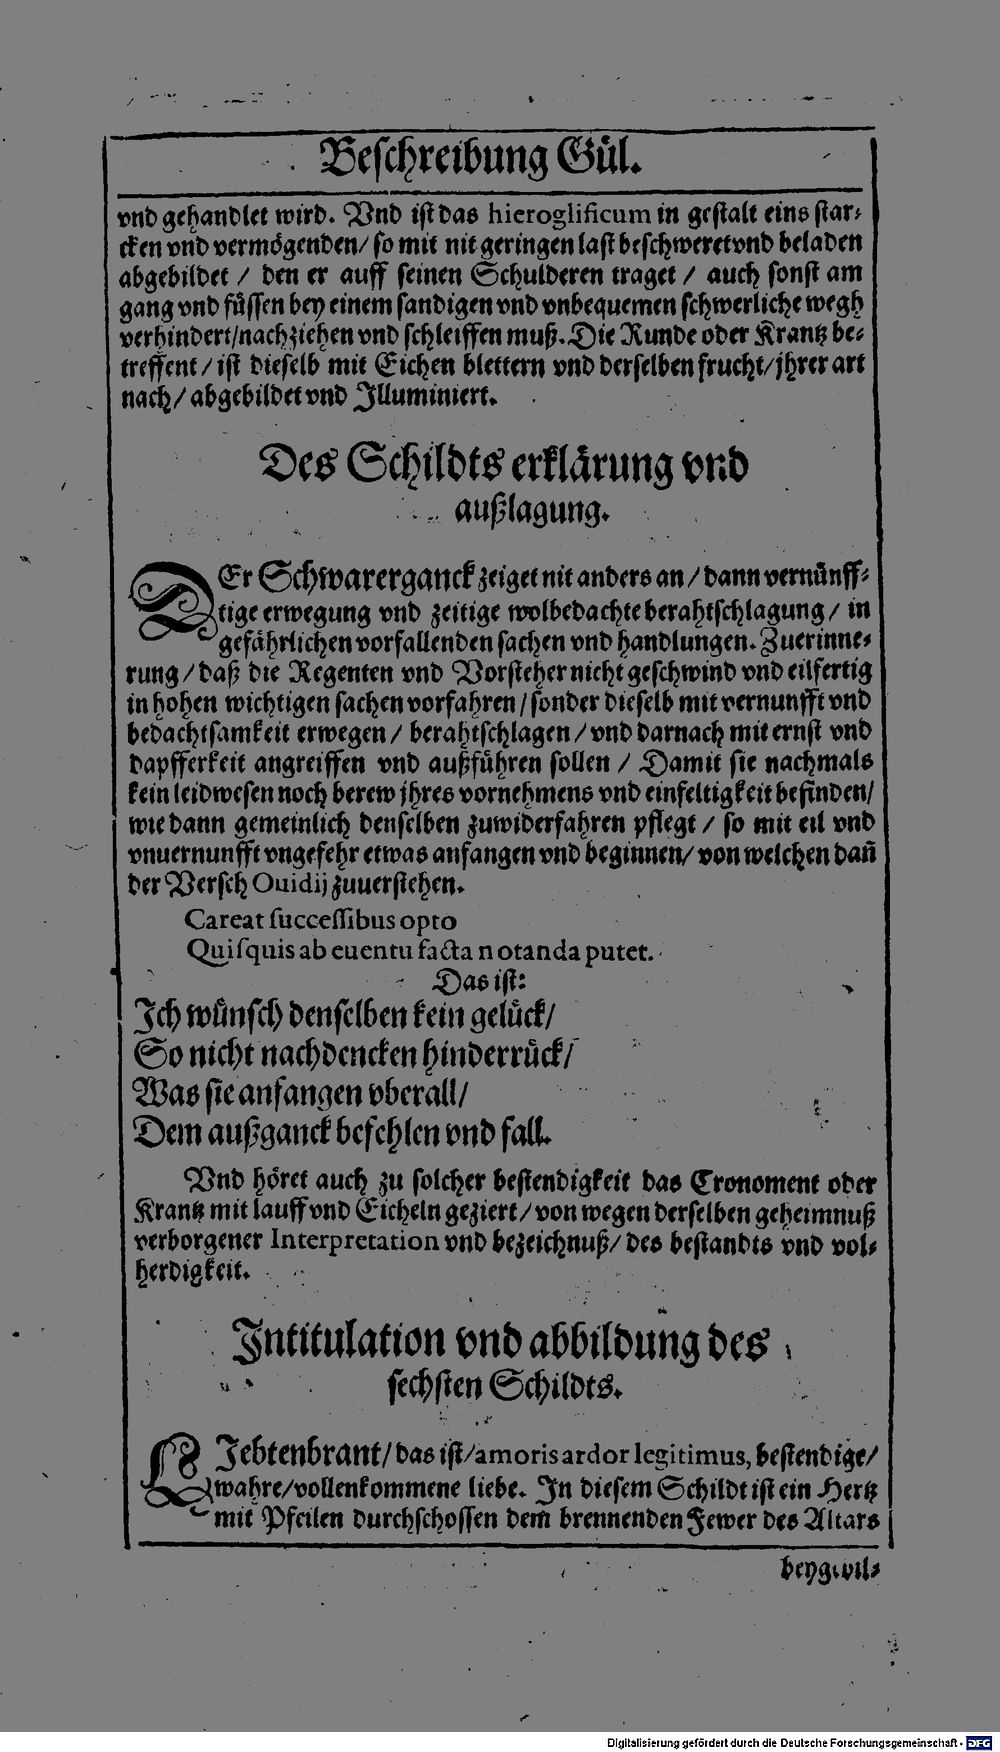 Beschreibung Gül.
vnd gehandlet wird. Vnd ist das hieroglificum in gestalt eins star-
cken vnd vermögenden/ so mit nit geringen last beschweret vnd beladen
abgebildet / den er auff seinen Schulderen traget / auch sonst am
gang vnd füssen bey einem sandigen vnd vnbequemen schwerliche wegh
verhindert/nachziehen vnd schleiffen muß. Die Runde oder Krantz be-
treffent / ist dieselb mit Eichen blettern vnd derselben frucht/jhrer art
nach/ abgebildet vnd Illuminiert.
Des Schildts erklärung vnd
außlagung.
DEr Schwarerganck zeiget nit anders an / dann vernünff-
tige erwegung vnd zeitige wolbedachte berahtschlagung / in
gefährlichen vorfallenden sachen vnd handlungen. Zuerinne-
rung / daß die Regenten vnd Vorsteher nicht geschwind vnd eilfertig
in hohen wichtigen sachen vorfahren / sonder dieselb mit vernunfft vnd
bedachtsamkeit erwegen / berahtschlagen / vnd darnach mit ernst vnd
dapfferkeit angreiffen vnd außführen sollen / Damit sie nachmals
kein leidwesen noch berew jhres vornehmens vnd einfeltigkeit befinden/
wie dann gemeinlich denselben zuwiderfahren pflegt / so mit eil vnd
vnuernunfft vngefehr etwas anfangen vnd beginnen/ von welchen dañ
der Versch Ouidij zuuerstehen.
Careat successibus opto
Quisquis ab euentu facta notanda putet.
Das ist:
Ich wünsch denselben kein gelück/
So nicht nachdencken hinderrück/
Was sie anfangen vberall/
Dem außganck befehlen vnd fall.
Vnd höret auch zu solcher bestendigkeit das Cronoment oder
Krantz mit lauff vnd Eicheln geziert / von wegen derselben geheimnuß
verborgener Interpretation vnd bezeichnuß/ des bestandts vnd vol-
herdigkeit.
Intitulation vnd abbildung des
sechsten Schildts.
LIebtenbrant/ das ist/amoris ardor legitimus, bestendige/
wahre/vollenkommene liebe. In diesem Schildt ist ein Hertz
mit Pfeilen durchschossen dem brennenden Fewer des Altars
Digitalisierung gefördert durch die Deutsche Forschungsgemeinschaft - DFG